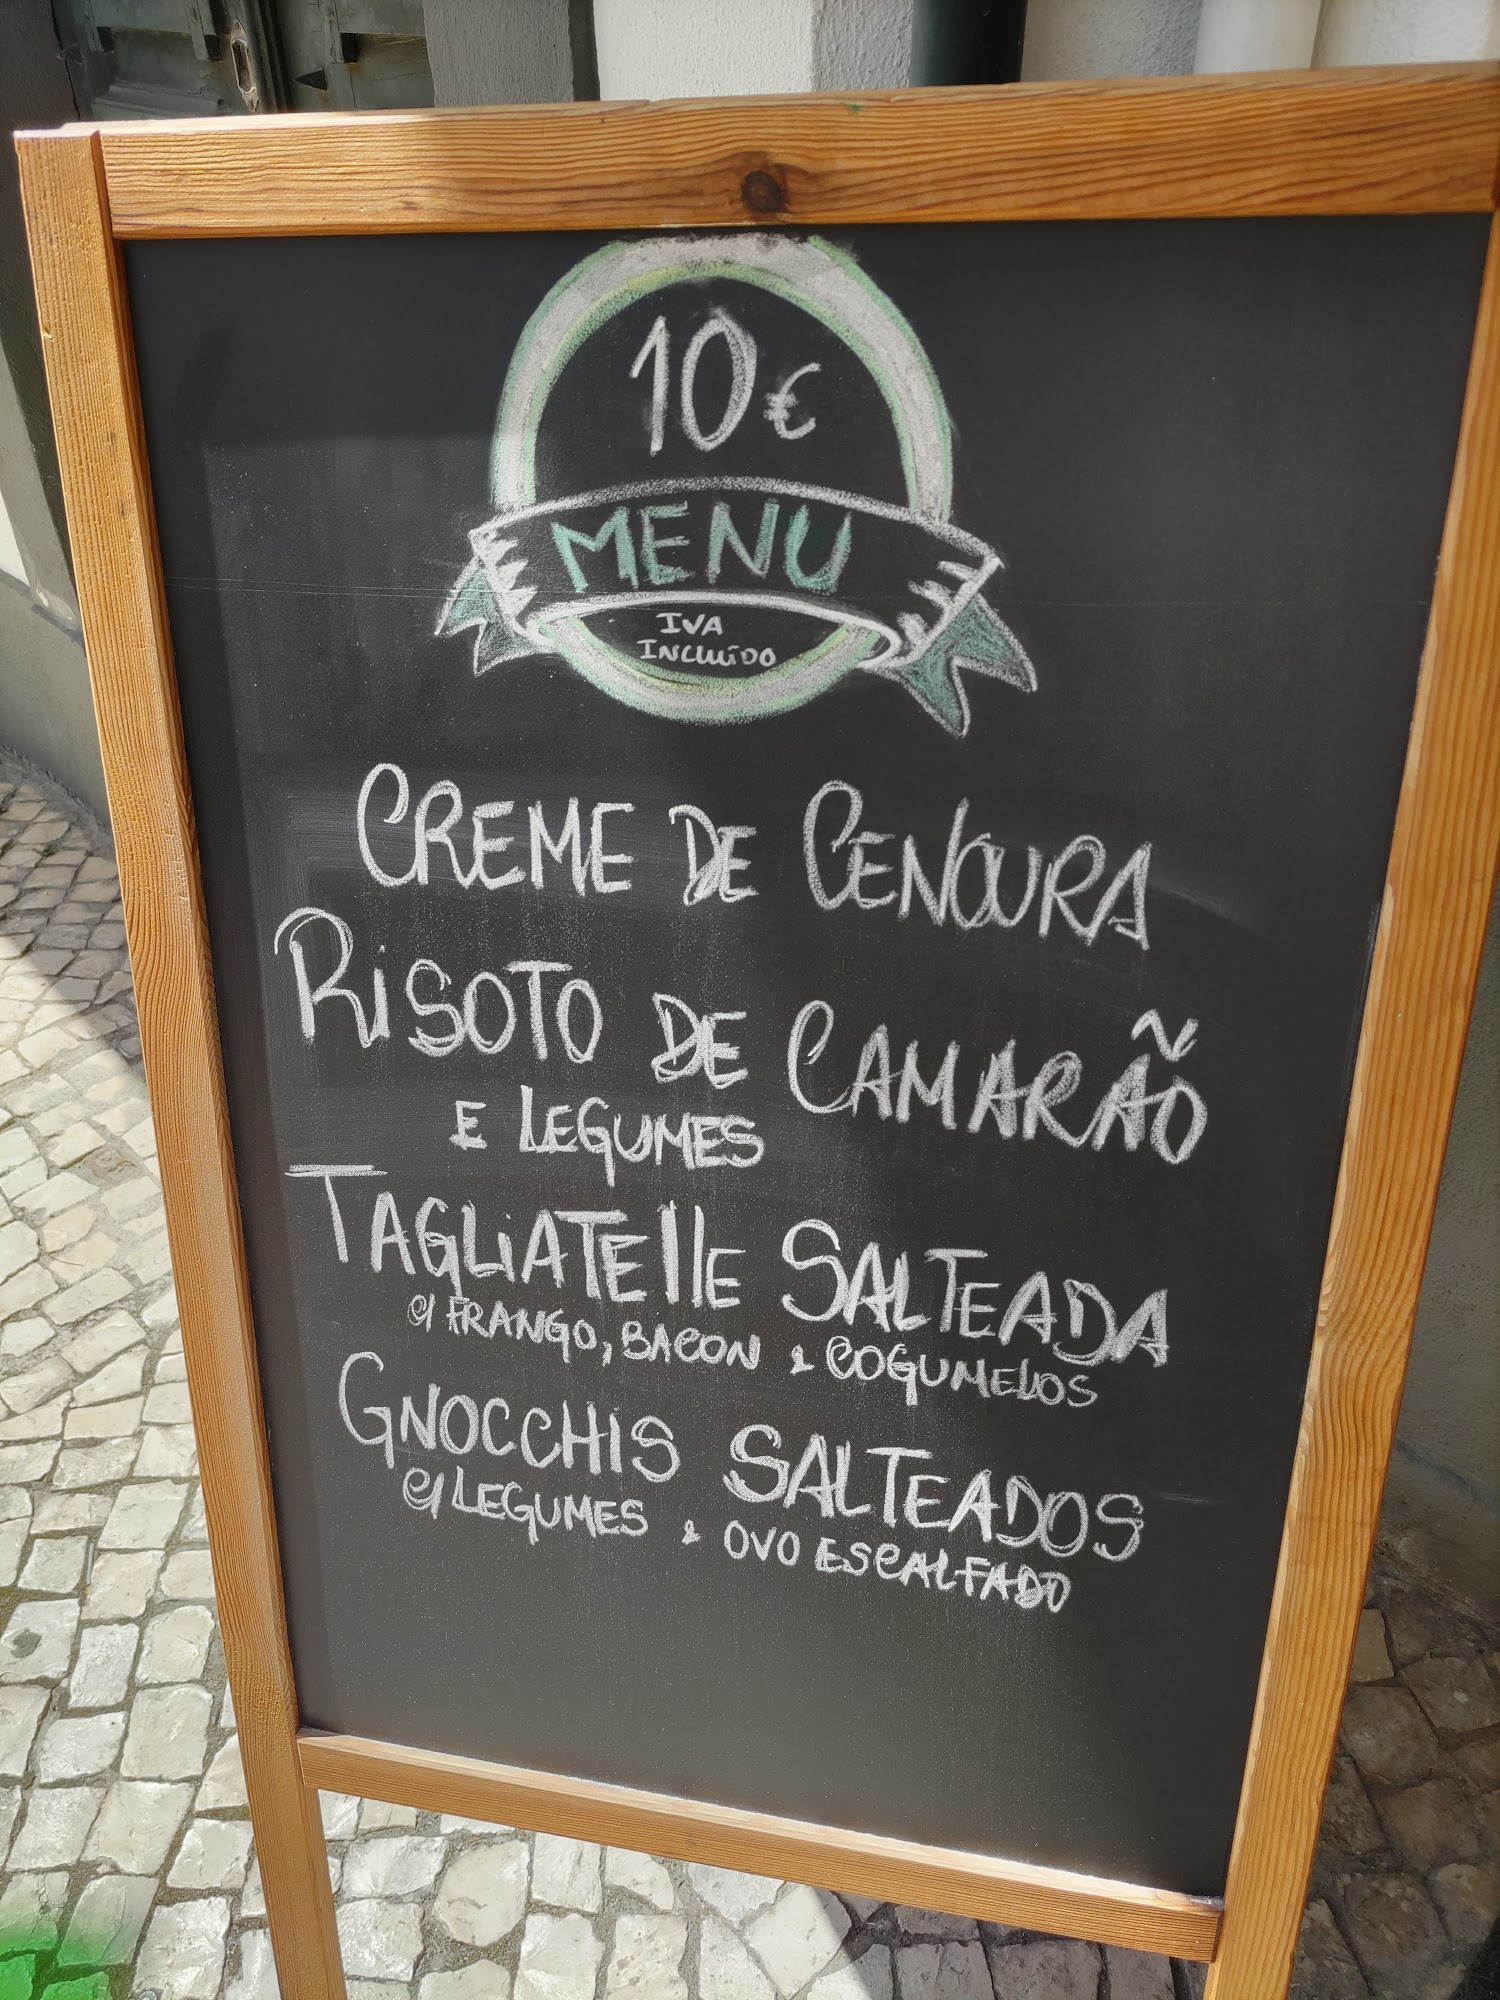 10€
MENU
IVA
INCLUÍDO
CREME DE CENOURA
RISOTO DE CAMARÃO
E LEGUMES
TAGLIATELLE SALTEADA
C/ FRANGO, BACON & COGUMELOS
GNOCCHIS SALTEADOS
C/ LEGUMES & OVO ESCALFADO